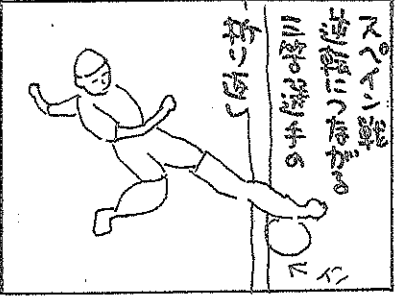 スペイン戦
逆転につながる
三笘選手の
折り返し
イン